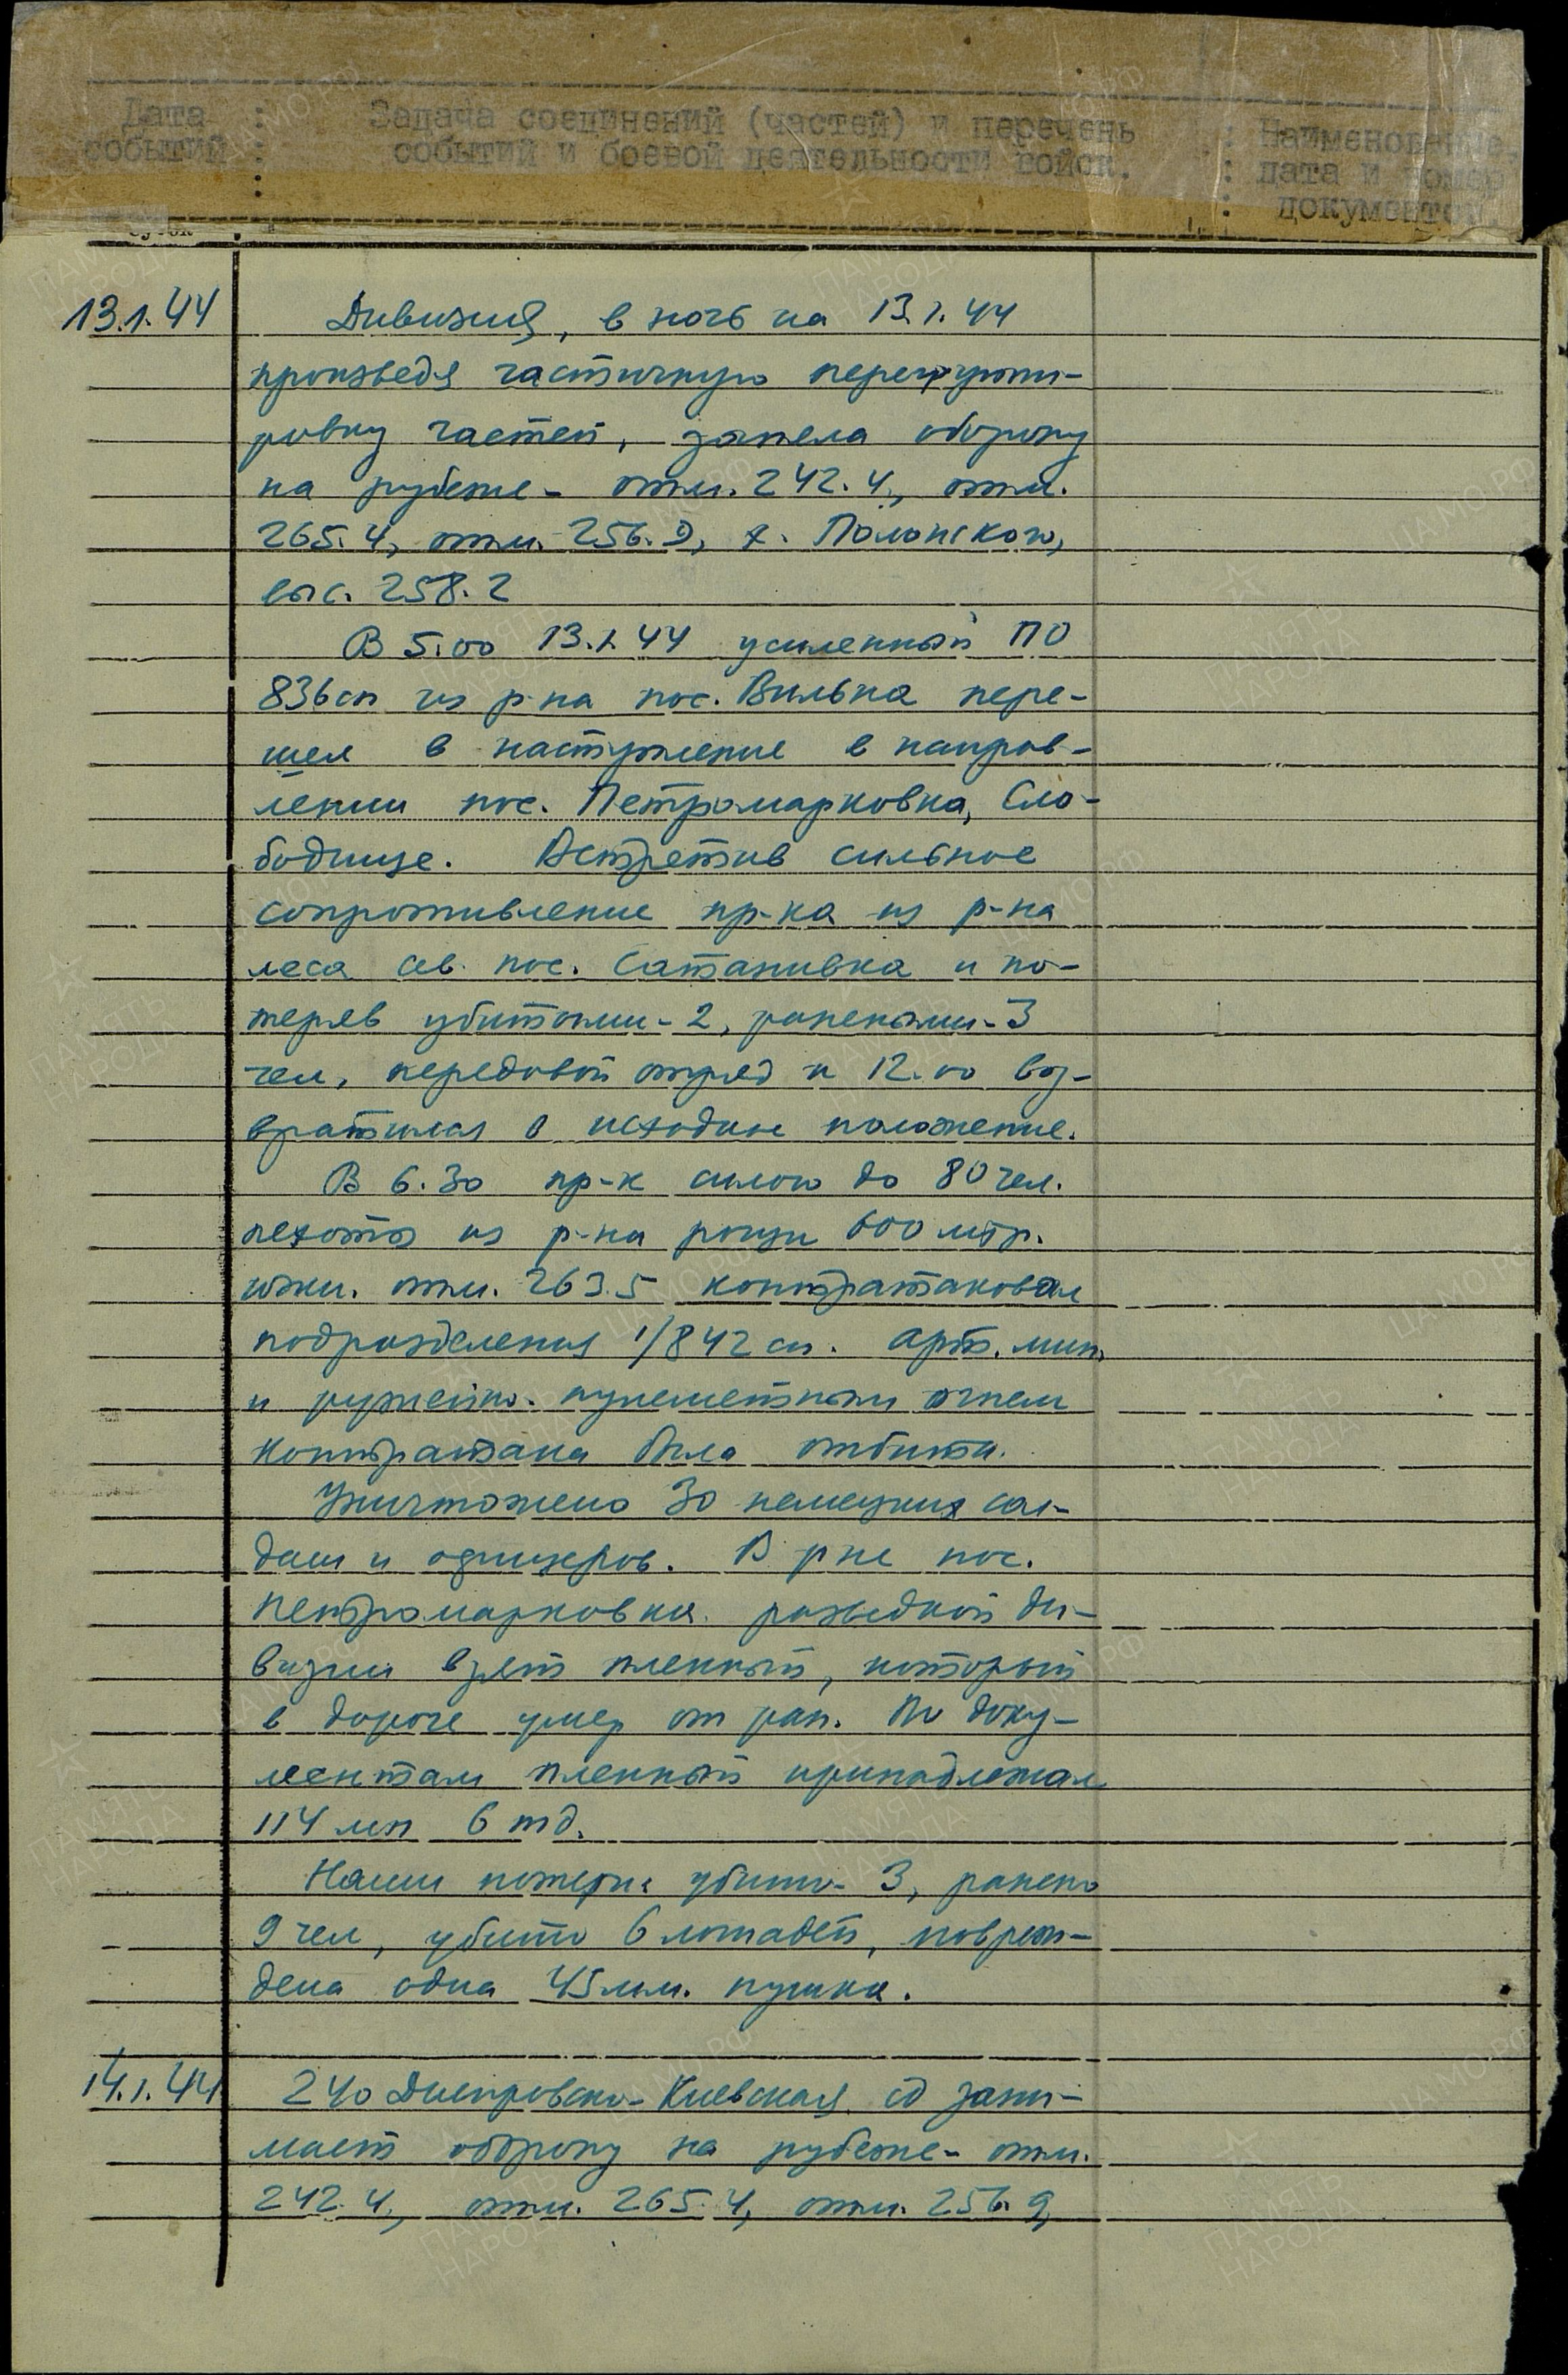 Дата : Задача соединений (частей) и перечень : Наименование,
событий : событий и боевой деятельности войск. : дата и номер
: : документов.
13.1.44 Дивизия, в ночь на 13.1.44
произведя частичную перегруппи-
ровку частей, заняла оборону
на рубеже - отм. 242.4, отм.
265.4, отм. 256.9, х. Полонского,
выс. 258.2
В 5.00 13.1.44 усиленный ПО
836 сп из р-на пос. Вильна пере-
шел в наступление в направ-
лении пос. Петромарковка, Сло-
бодище. Встретив сильное
сопротивление пр-ка из р-на
леса сев. пос. Сатанивка и по-
теряв убитыми - 2, ранеными - 3
чел, передовой отряд к 12.00 воз-
вратился в исходное положение.
В 6.30 пр-к силою до 80 чел.
пехоты из р-на рощи 600 мтр.
южн. отм. 263.5 контратаковал
подразделения 1/842 сп. Арт. мин.
и ружейно-пулеметным огнем
контратака была отбита.
Уничтожено 30 немецких сол-
дат и офицеров. В р-не пос.
Петромарковка разведкой ди-
визии взят пленный, который
в дороге умер от ран. По доку-
ментам пленный принадлежал
114 мп 6 тд.
Наши потери: убито - 3, ранено
9 чел, убито 6 лошадей, повреж-
дена одна 45 мм. пушка.
14.1.44 240 Днепровско-Киевская сд зани-
мает оборону на рубеже - отм.
242.4, отм. 265.4, отм. 256.9,